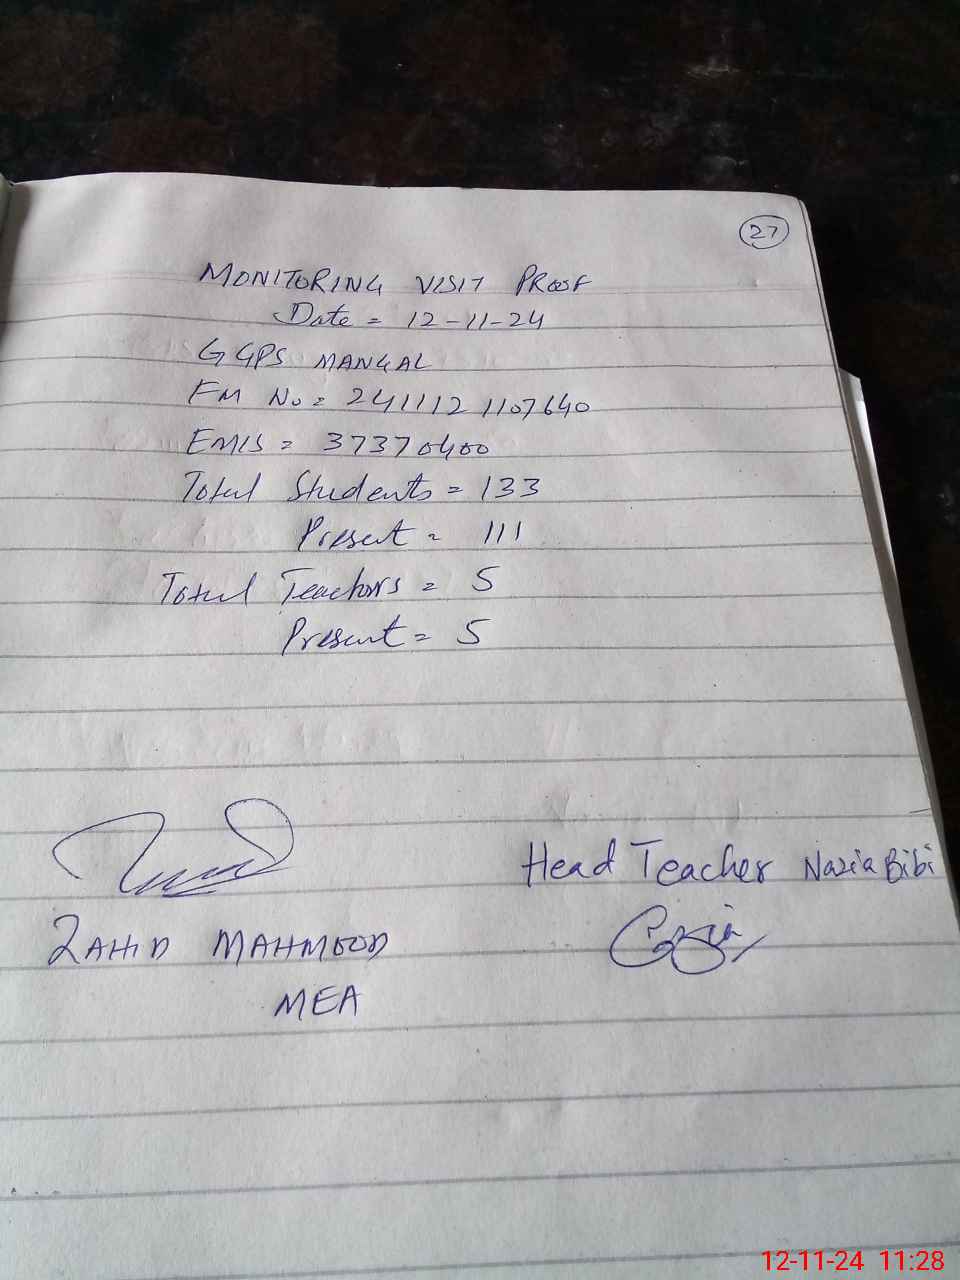 27
MONITORING VISIT PROOF
Date = 12-11-24
GGPS MANGAL
FM No = 2411121107640
EMIS = 37370400
Total Students = 133
Present = 111
Total Teachers = 5
Present = 5
Head Teacher Nazia Bibi
ZAHID MAHMOOD
MEA
12-11-24 11:28